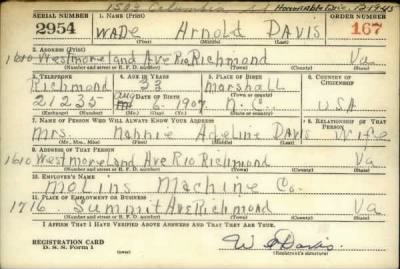 1503 Columbia St Honorable Dis. 12-19-45
SERIAL NUMBER 1. NAME (Print) ORDER NUMBER
2954 WADE Arnold DAVIS 167
(First) (Middle) (Last)
2. ADDRESS (Print)
1610 Westmoreland Ave RIO Richmond Va
(Number and street or R. F. D. number) (Town) (County) (State)
3. TELEPHONE 4. AGE IN YEARS 5. PLACE OF BIRTH 6. COUNTRY OF CITIZENSHIP
Richmond 33 Marshall
DATE OF BIRTH (Town or county)
21235 Aug 6 1907 N.C. USA
(Exchange) (Number) (Mo.) (Day) (Yr.) (State or country)
7. NAME OF PERSON WHO WILL ALWAYS KNOW YOUR ADDRESS 8. RELATIONSHIP OF THAT PERSON
Mrs. Nannie Adeline Davis Wife
(Mr., Mrs., Miss) (First) (Middle) (Last)
9. ADDRESS OF THAT PERSON
1610 Westmoreland Ave RIO Richmond Va
(Number and street or R. F. D. number) (Town) (County) (State)
10. EMPLOYER'S NAME
Molins Machine Co.
11. PLACE OF EMPLOYMENT OR BUSINESS
1716 Summit Ave Richmond Va
(Number and street or R. F. D. number) (Town) (County) (State)
I AFFIRM THAT I HAVE VERIFIED ABOVE ANSWERS AND THAT THEY ARE TRUE.
REGISTRATION CARD
D. S. S. Form 1
W A Davis
(Registrant's signature)